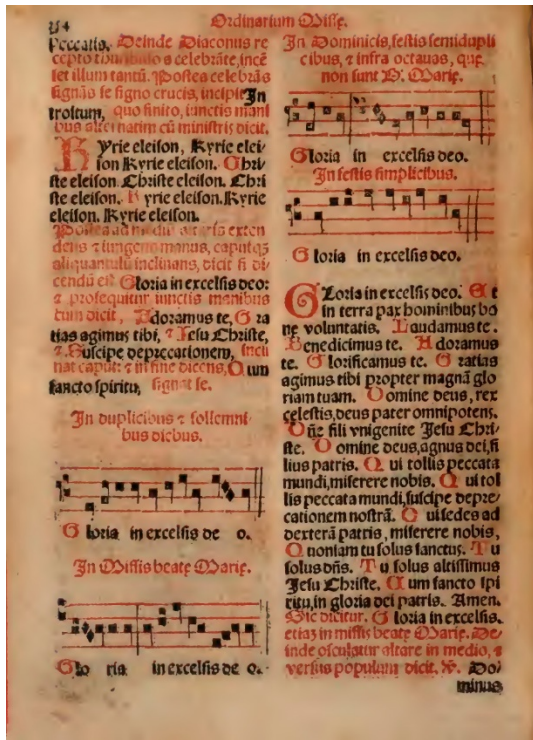 Ordinarium Missę.
peccatis. Deinde Diaconus re
cepto celebrāte, incē
set illum tantū. Postea celebrās
signās se signo crucis, incipit In
troitum, quo finito, iunctis mani
bus alternatim cū ministris dicit.
Kyrie eleison, Kyrie elei-
son Kyrie eleison. Chri-
ste eleison. Christe eleison. Chri
ste eleison. Kyrie eleison. Kyrie
eleison. Kyrie eleison.
Postea ad mediū altaris exten
dens ⁊ iungens manus, caputqꝫ
aliquantulū inclinans, dicit si di-
cendū est Gloria in excelsis deo:
⁊ prosequitur iunctis manibus
cum dicit, Adoramus te, Gra
tias agimus tibi, ⁊ Jesu Christe,
⁊ Suscipe deprecationem, incli
nat caput: ⁊ in fine dicens, Cum
sancto spiritu, signat se.
In duplicibus ⁊ sollemni-
bus diebus.
Gloria in excelsis de o.
In Missis beatę Marię.
Glo ria in excelsis de o.
In Dominicis, festis semidupli
cibus, ⁊ infra octauas, quę
non sunt B. Marię.
Gloria in excelsis deo.
In festis simplicibus.
Gloria in excelsis deo.
Gloria in excelsis deo. Et
in terra pax hominibus bo
nę voluntatis. Laudamus te.
Benedicimus te. Adoramus
te. Glorificamus te. Gratias
agimus tibi propter magnā glo
riam tuam. Domine deus, rex
cęlestis, deus pater omnipotens.
Dñe fili vnigenite Jesu Chri-
ste. Domine deus, agnus dei, fi
lius patris. Qui tollis peccata
mundi, miserere nobis. Qui tol
lis peccata mundi, suscipe depre-
cationem nostrā. Qui sedes ad
dexterā patris, miserere nobis,
Quoniam tu solus sanctus. Tu
solus dñs. Tu solus altissimus
Jesu Christe. Cum sancto spi
ritu, in gloria dei patris. Amen.
Sic dicitur. Gloria in excelsis.
etiaꝫ in missis beatę Marię. De-
inde osculatur altare in medio, ⁊
versus populum dicit. ℣. Do-
minus